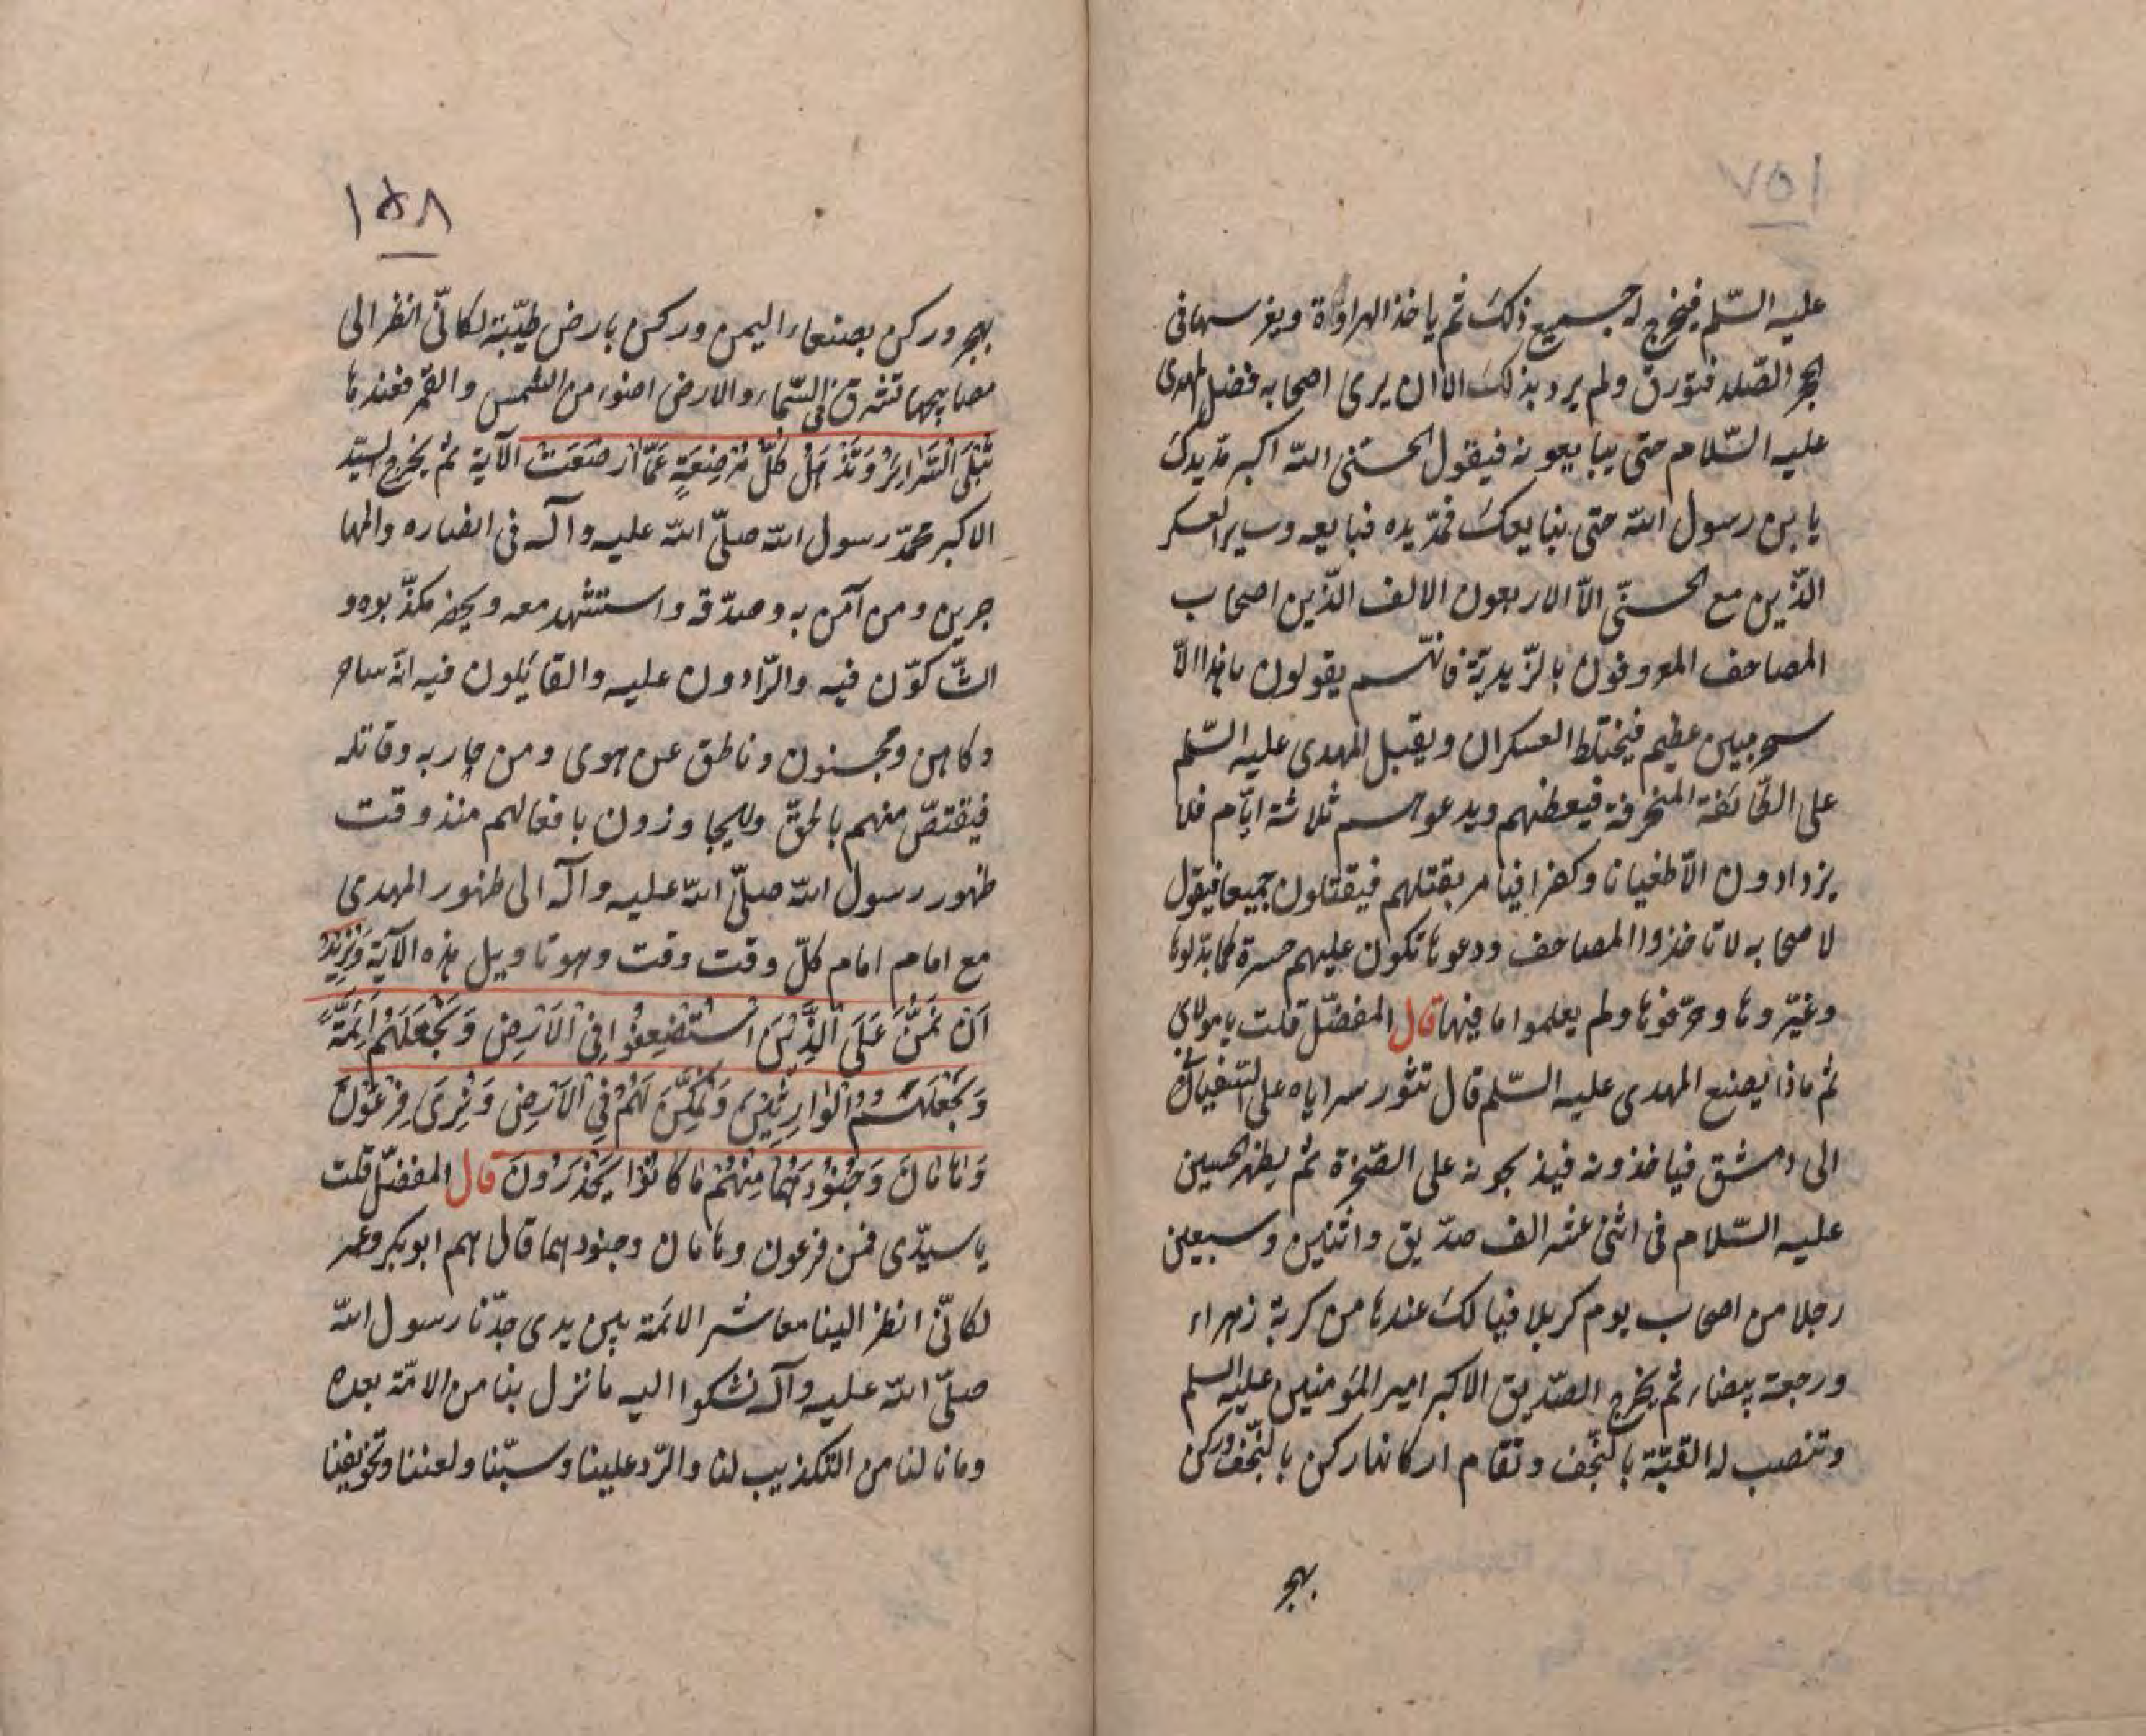 ١٥٧
عليه السّلم فيخرج له جميع ذلك ثم ياخذ الهراوة ويغرسها فى
الحجر الصّلد فتورق ولم يرد بذلك الا ان يرى اصحابه فضل المهدى
عليه السّلام حتى يبايعونه فيقول الحسنى الله اكبر مدّ يدك
يا بن رسول الله حتى نبايعك فمدّ يده فبايعه وساير العسكر
الذّين مع الحسنّى الاّ الاربعون الالف الذّين اصحاب
المصاحف المعروفون بالزّيديّة فانّهم يقولون ما هذا الاّ
سحر مبين عظيم فيختلط العسكران ويقبل المهدى عليه السّلم
على الطّائفة المنحرفة فيعظهم ويدعوهم ثلاثة ايّام فلا
يزدادون الاّ طغيانا وكفرا فيامر بقتلهم فيقتلون جميعا فيقول
لاصحابه لا تاخذوا المصاحف ودعوها تكون عليهم حسرة كما بدّلوها
وغيّروها وحرّفوها ولم يعلموا ما فيها قال المفضّل قلت يا مولاى
ثم ماذا يصنع المهدى عليه السّلم قال تثور سراياه على السّفيانى
الى دمشق فياخذونه فيذبحونه على الصّخرة ثم يظهر الحسين
عليه السّلام فى اثنى عشر الف صدّيق واثنين وسبعين
رجلا من اصحاب يوم كربلا فيا لك عندها من كرية زهراء
ورجعة بيضاء ثم يخرج الصّديق الاكبر امير المؤمنين عليه السلم
وتنصب له القبّة بالنّجف وتقام اركانها ركن بالنّجف وركن
بهجر
١٥٨
بهجر وركن بصنعاء اليمن وركن بارض طيّبة لكانّى انظر الى
مصابيحها تشرق فى السّماء والارض اضوء من الشمس والقمر فعندها
تُبْلَى السَّرَائِرُ وَتَذْهَلُ كُلُّ مُرْضِعَةٍ عَمَّا اَرْضَعَتْ الآية ثم يخرج السيّد
الاكبر محمّد رسول الله صلّى الله عليه وآله فى انصاره والمها
جرين ومن آمن به وصدّقه واستشهد معه ويحضر مكذّبوه و
الشّاكوّن فيه والرّادون عليه والقائلون فيه انّه ساحر
وكاهن ومجنون وناطق عن هوى ومن حاربه وقاتله
فيقتصّ منهم بالحقّ وليجاوزون بافعالهم منذ وقت
ظهور رسول الله صلّى الله عليه وآله الى ظهور المهدى
مع امام امام كلّ وقت وقت وهو تاويل هذه الآية وَنُرِيْدُ
اَنْ نَمُنَّ عَلَى الَّذِيْنَ اسْتُضْعِفُوْا فِى الْاَرْضِ وَنَجْعَلَهُمْ اَئِمَّةً
وَنَجْعَلَهُمُ الْوَارِثِيْنَ وَنُمَكِّنَ لَهُمْ فِى الْاَرْضِ وَنُرِىَ فِرْعَوْنَ
وَهَامَانَ وَجُنُوْدَهُمَا مِنْهُمْ مَا كَانُوْا يَحْذَرُوْنَ قال المفضّل قلت
يا سيّدى فمن فرعون وهامان وجنودهما قال هم ابو بكر وعمر
لكانّى انظر الينا معاشر الائمة بين يدى جدّنا رسول الله
صلّى الله عليه وآله نشكوا اليه ما نزل بنا من الامّة بعده
وما نالنا من التكذيب لنا والرّد علينا وسبّنا ولعننا وتخويفنا